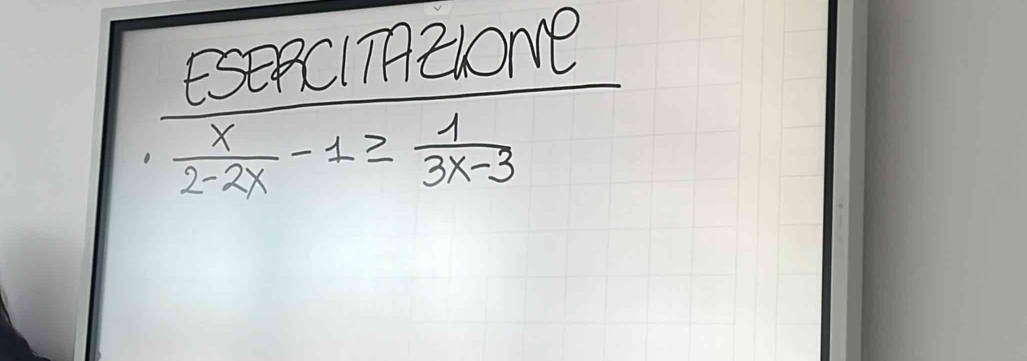 ESERCITAZIONe
· \frac{x}{2-2x} - 1 ≥ \frac{1}{3x-3}